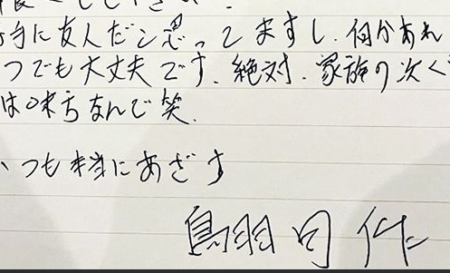 手に友人だと思ってますし、何かあれ
つでも大丈夫です、絶対、家族の次く
は味方なんで笑
いつも本当にあざす
鳥羽